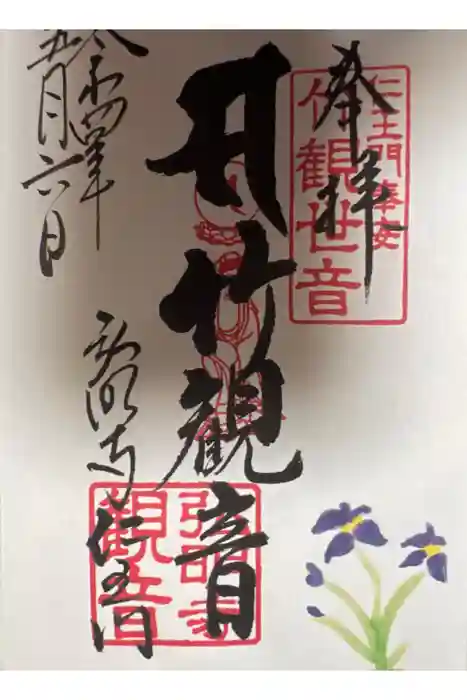 奉拝
仁王門奉安
観世音
竹観音
令和四年
五月六日
弘明寺
仁王門
弘明寺
観音